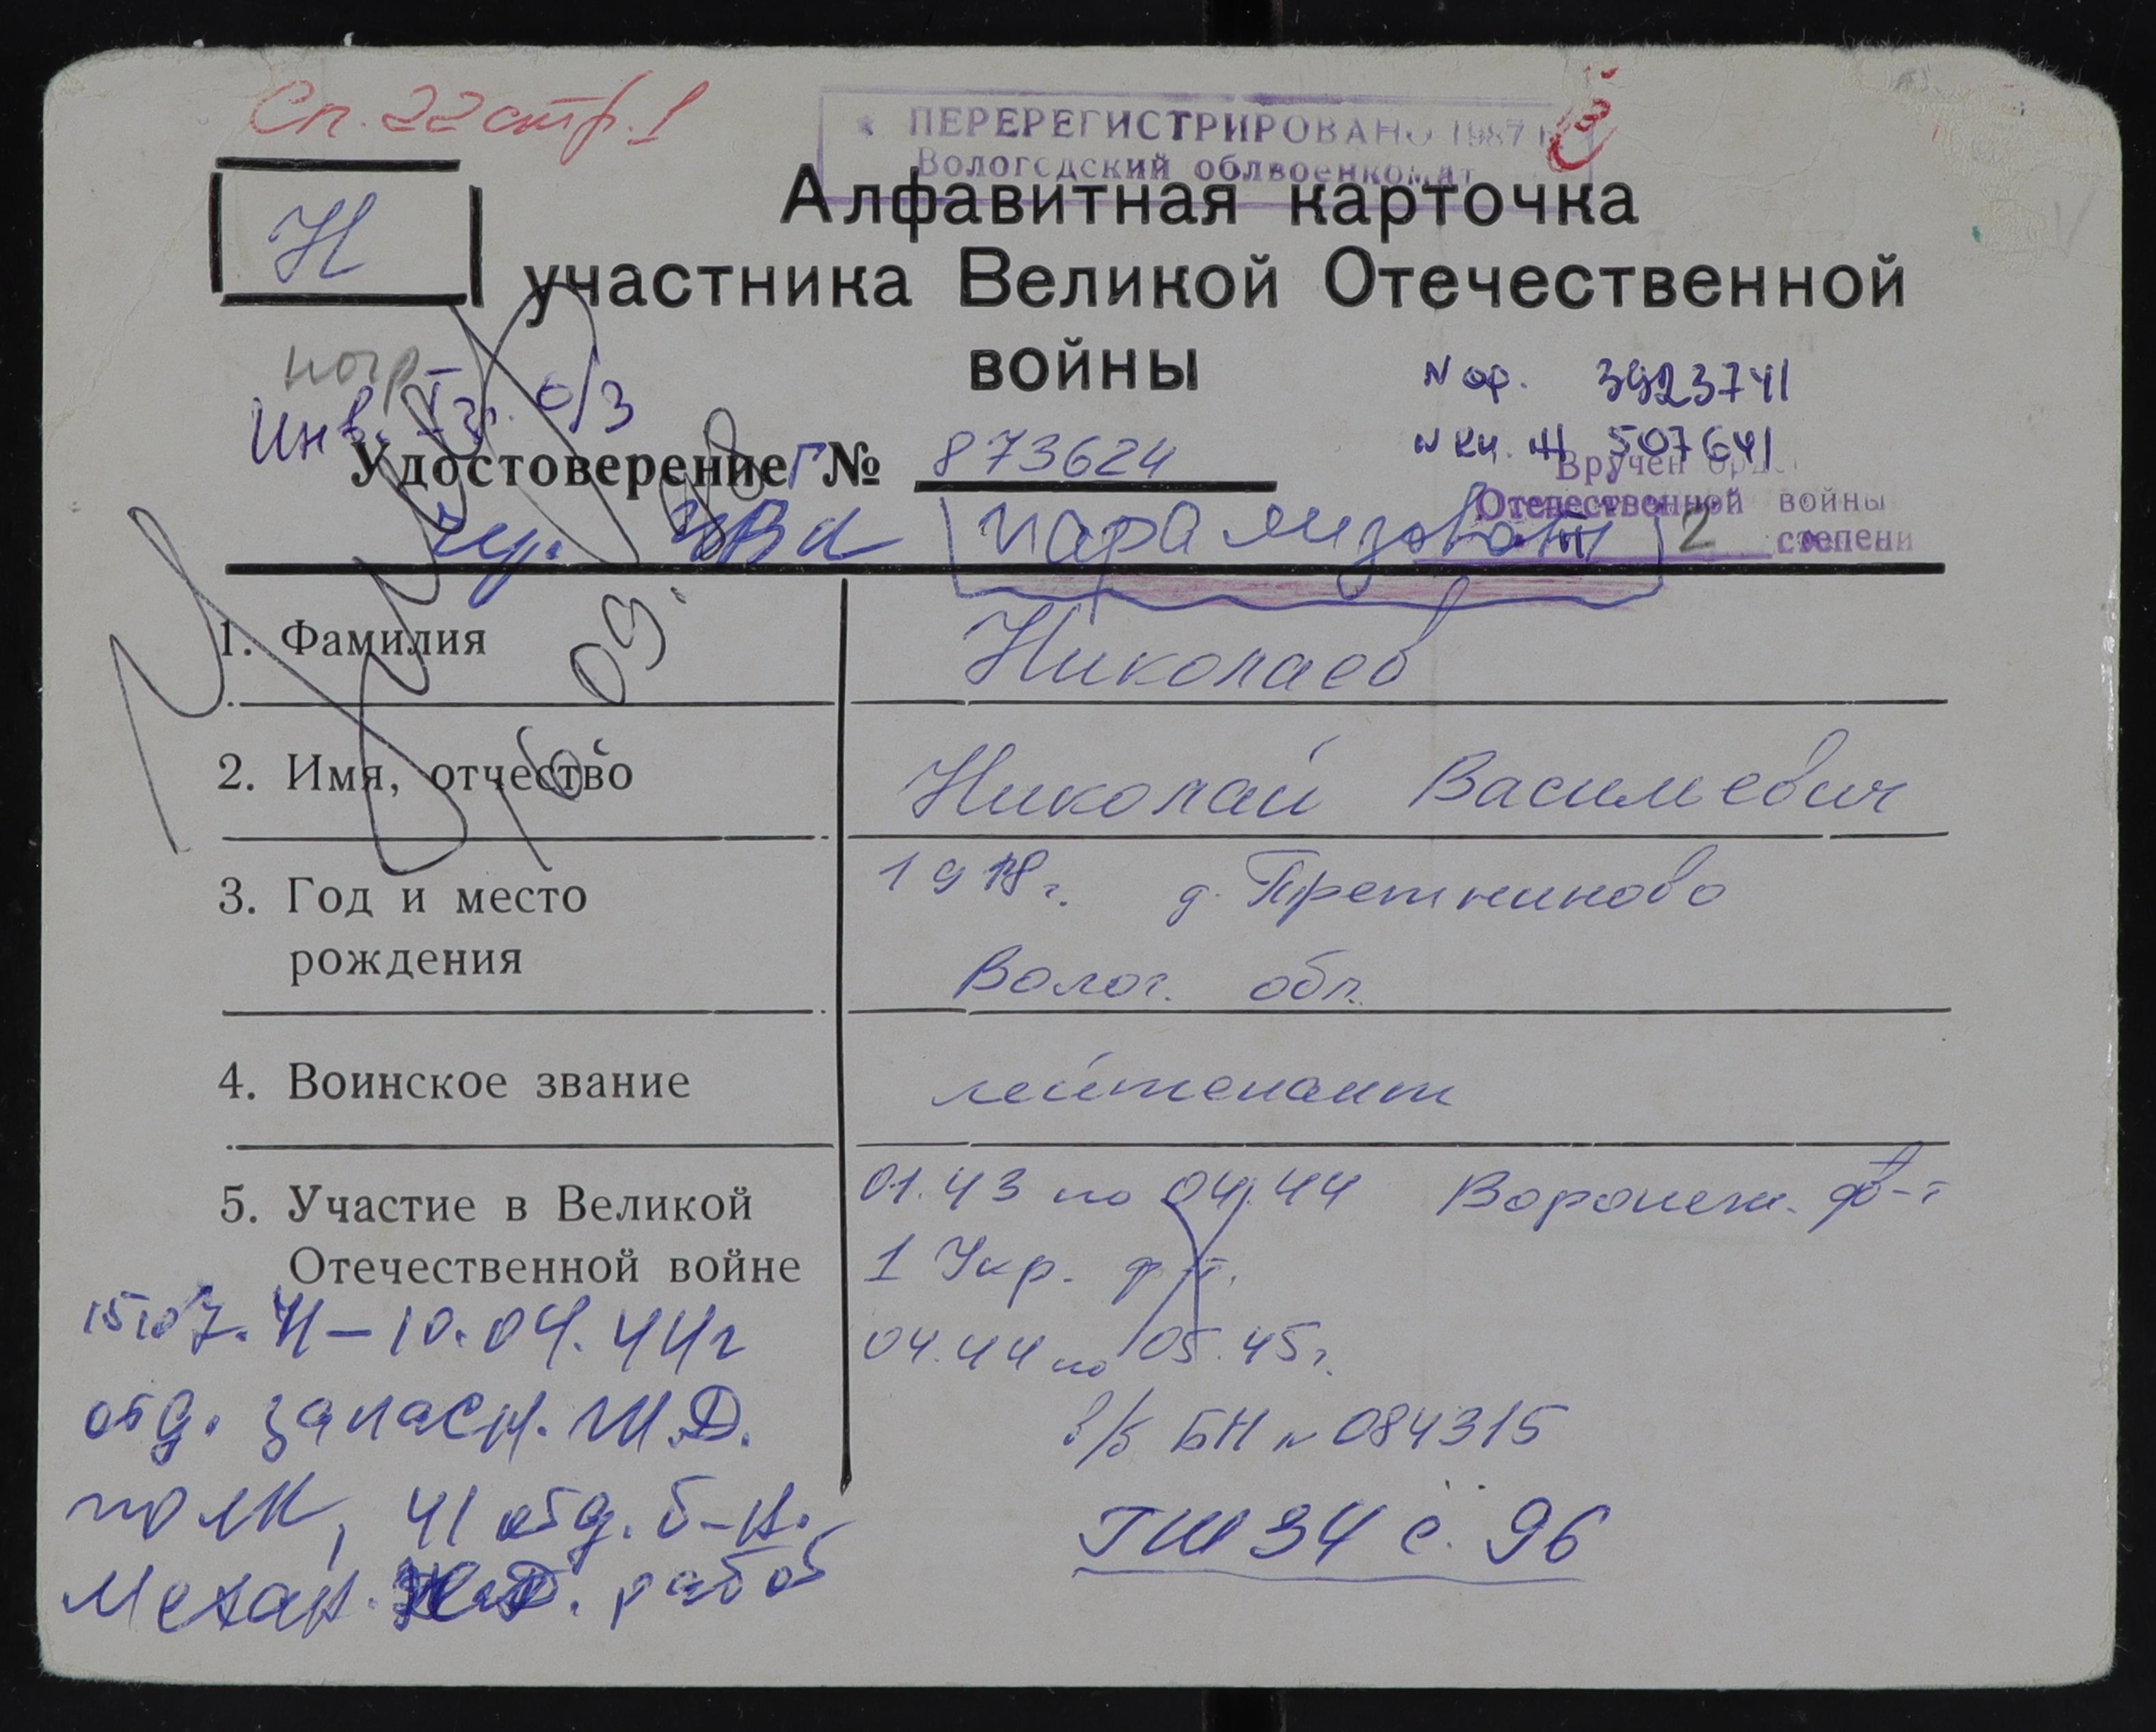 Сп. 22 стр. 1
ПЕРЕРЕГИСТРИРОВАНО 1987 г.
Вологодский облвоенкомат
Н
Алфавитная карточка
участника Великой Отечественной
войны
погр
N ор. 3923741
Инв. о/з
N кн. 507641
Удостоверение Г № 873624
Вручен орд
Отечественной войны
2 степени
парализован
1. Фамилия Николаев
2. Имя, отчество Николай Васильевич
3. Год и место 1918 г. д.
рождения Волог. обл.
4. Воинское звание лейтенант
5. Участие в Великой 01.43 по 04.44 Воронеж. ф-т
Отечественной войне 1 Укр. ф-т.
15.07.41–10.04.44г
04.44 по 05.45г.
отд. запасн. Ж.Д.
в/б БН N 084315
полк, 41 отд. б-н.
ГШ 34 с. 96
механ. ЖД. работ